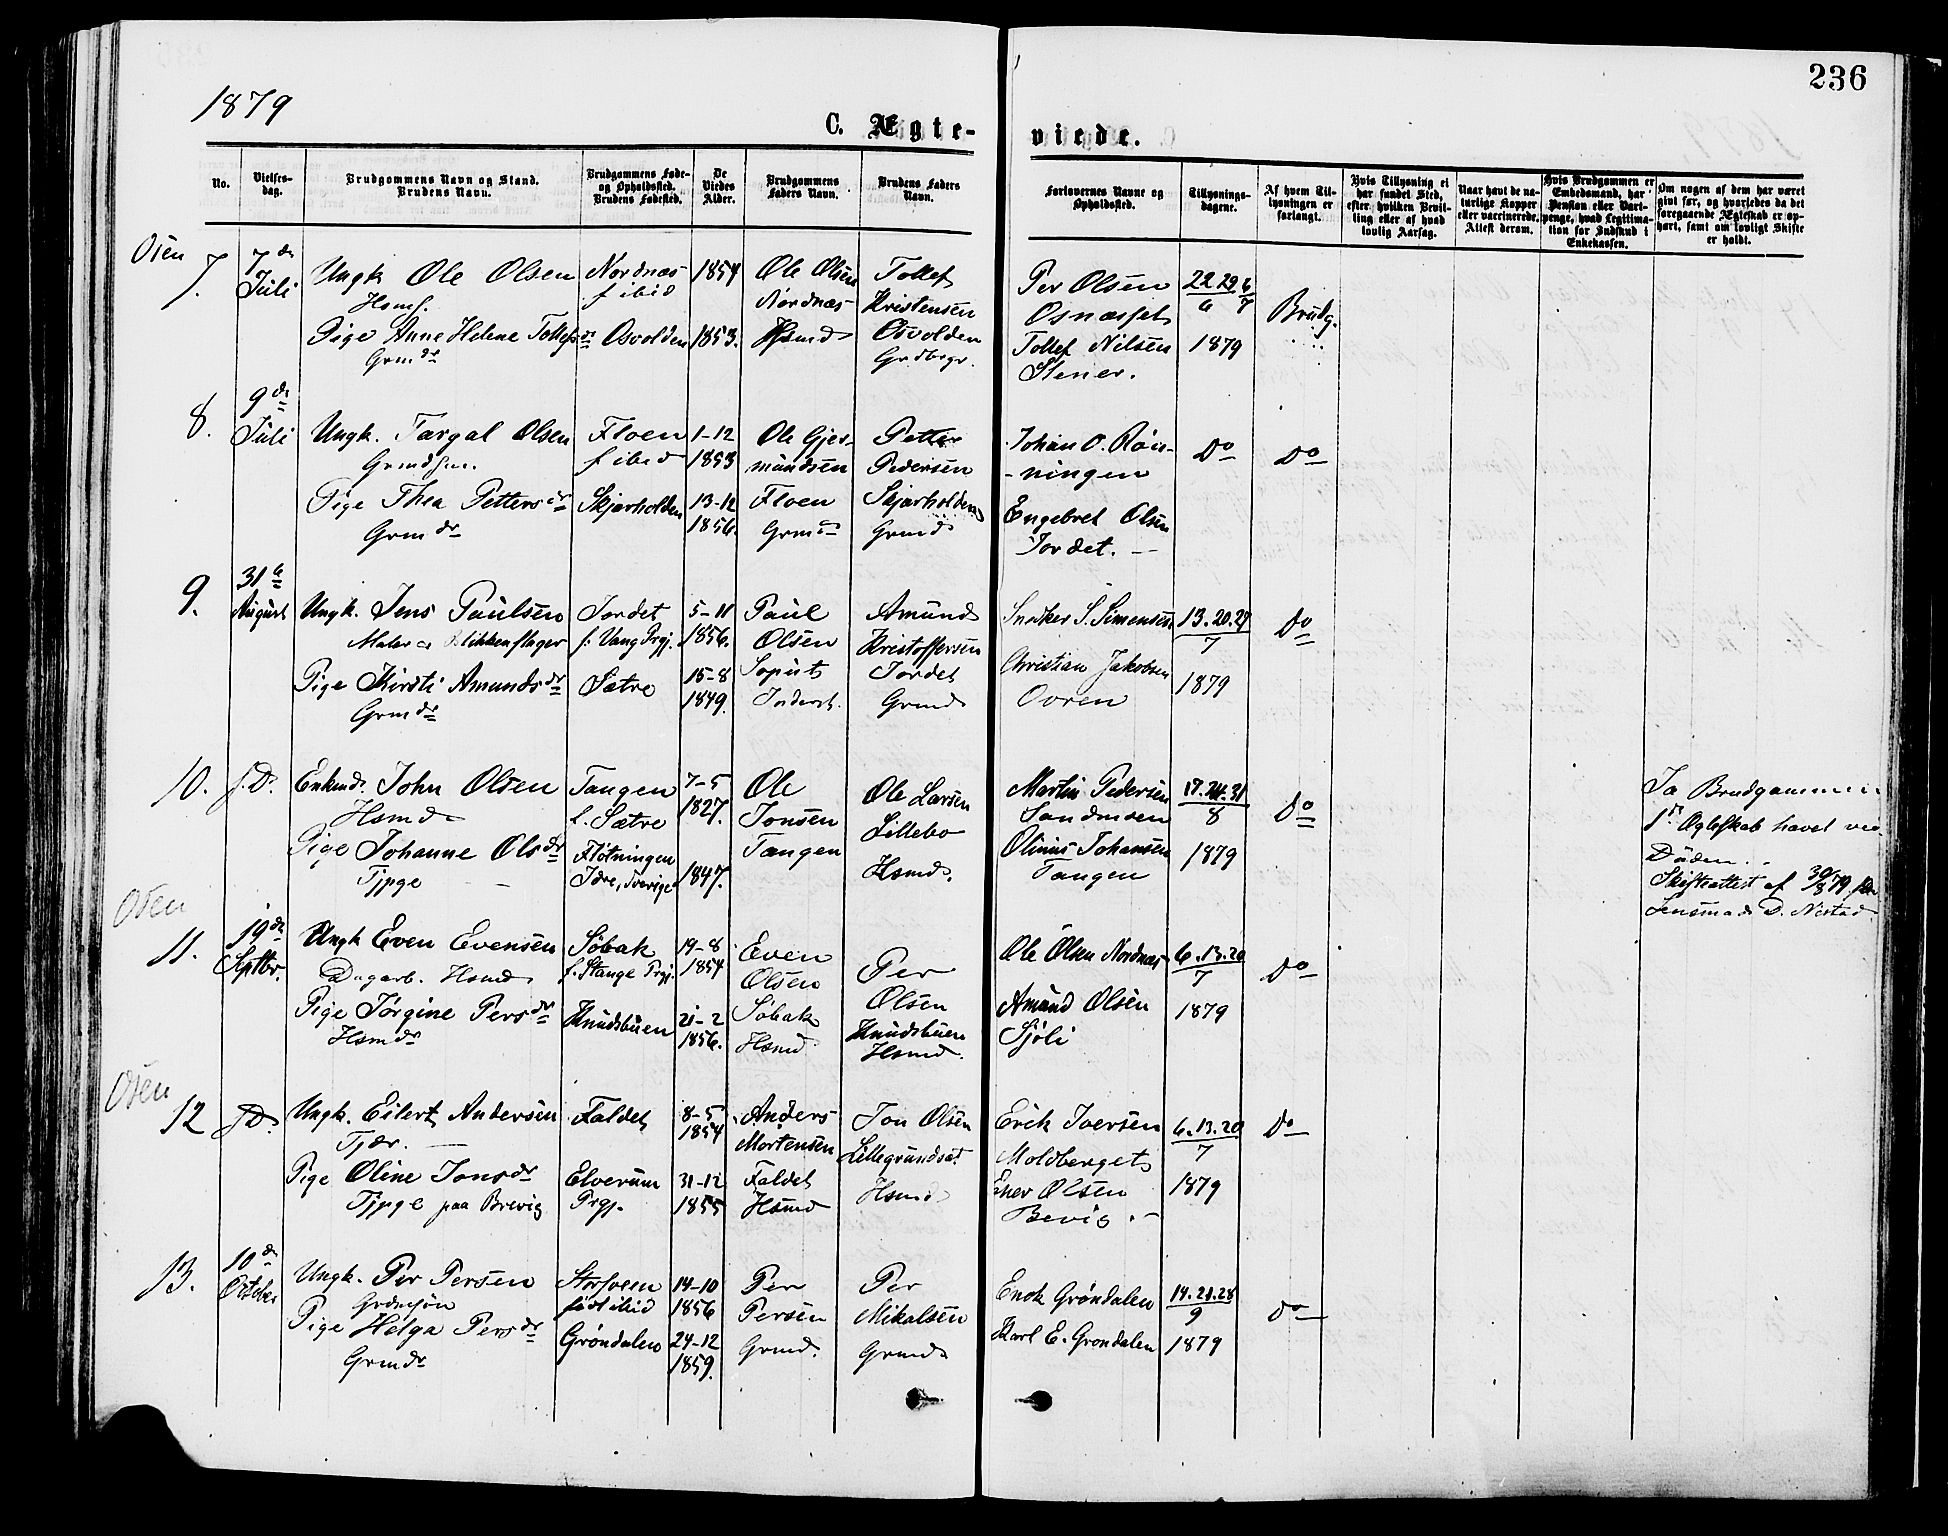 236
1879
C. Ægte- viede.
No.
Vielses-
dag.
Brudgommens Navn og Stand.
Brudens Navn.
Brudgommens Føde-
og Opholdssted.
Brudens Fødested.
De
Viedes
Alder.
Brudgommens
Faders Navn.
Brudens Faders
Navn.
Forlovernes Navne og
Opholdssted.
Tillysnings-
dagene.
Af hvem Til-
lysningen er
forlangt.
Hvis Tillysning ei
har fundet Sted,
efter hvilken Bevil-
ling eller af hvad
lovlig Aarsag.
Naar havt de na-
turlige Kopper
eller vaccinerede.
Attest derom.
Hvis Brudgommen er
Embedsmand, har
Pension eller Vart-
penge, hvad Legitima-
tion for Indskud i
Enkekassen.
Om nogen af dem har været
gift før, og hvorledes da det
foregaaende Ægteskab er op-
hørt, samt om lovligt Skifte
er holdt.
Osen
7.
7de
Juli
Ungk Ole Olsen
Hsmf.
Pige Anne Helene Tollefsdr
Grmdr
Nordnæs
f ibid
Osvolden
1854
1853.
Ole Olsen
Nordnæs
Hsmd
Tollef
Kristensen
Osvolden
Grdbrgr.
Per Olsen
Osnæsset
Tollef Nilsen
Stener.
22 29 6
6 7
1879
Brudg.
8.
9de
Juli
Ungk. Targal Olsen
Grmdsn.
Pige Thea Pettersdr
Grmdr
Floen
f ibid
Skjærholden
1-12
1853
13-12
1856.
Ole Gjer-
mundsen
Floen
Grmd
Petter
Pedersen
Skjærholden
Grmd
Johan O. Røn-
-ningen
Engebret Olsen
Jordet.
Do
Do
9.
31te
August
Ungk. Jens Paulsen
Maler & Blikkenslager
Pige Kirsti Amundsdr
Grmdr
Jordet
f. Vang Prgj.
Sætre
5-11
1856.
15-8
1849.
Paul
Olsen
Amund
Kristoffersen
Jordet
Grmd
Snilker S. Simensen
Christian Jakobsen
Ovren
13. 20. 27
7
1879
Do
10.
s. D.
Enkmd. John Olsen
Hsmd
Pige Johanne Olsdr
Tjpge
Tangen
f. Sætre
Fløtningen
Idre, Sverige
7-5
1827.
1847.
Ole
Jonsen
Tangen
Ole Larsen
Lillebo
Hsmd.
Martin Pedersen
Sandmoen
Olinus Johansen
Tangen
17. 24. 31
8
1879
Do
Ja Brudgommen
1st Ægteskab hævet ved
Døden.
Skifteattest af 30/8 79 fra
Lensmand D. Nestad
Osen
11.
19de
Sptbr.
Ungk Even Evensen
Dagarb. Hsmd
Pige Jørgine Persdr
Hsmdr
Søbak
f. Stange Prgj.
Knudsbuen
19-8
1854
21-2
1856.
Even
Olsen
Søbak
Hsmd
Per
Olsen
Knudsbuen
Hsmd.
Ole Olsen Nordnæs
Amund Olsen
Sjøli
6. 13. 20
7
1879
Do
Osen
12
s D.
Ungk. Eilert Andersen
Tjær.
Pige Oline Jonsdr
Tjpge paa Brevig
Faldet
Elverum
Prgj.
8-5
1854
31-12
1855
Anders
Mortensen
Faldet
Hsmd
Jon Olsen
Lillegrundset
Hsmd
Erik Iversen
Moldberget
Ener Olsen
Bevig.
6. 13. 20
7
1879
Do
13.
10de
October
Ungk. Per Persen
Grdmsøn
Pige Helga Persdr
Grmdr
Storsveen
født ibid
Grøndalen
14-10
1856
24-12
1859.
Per
Persen
Grmd.
Per
Mikalsen
Grmd
Erick Grøndalen
Karl E. Grøndalen
14. 21. 28
9
1879
do